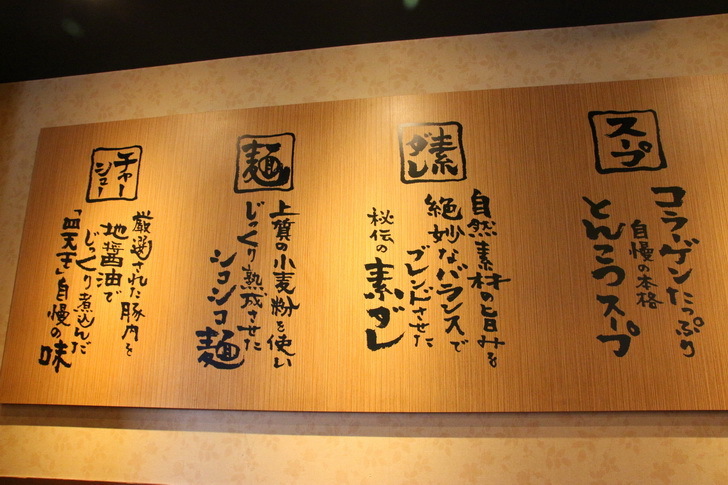 スープ
コラーゲンたっぷり
自慢の本格
とんこつスープ
素ダレ
自然素材の旨みを
絶妙なバランスで
ブレンドさせた
秘伝の
素ダレ
麺
上質の小麦粉を使い
じっくり熟成させた
シコシコ麺
チャーシュー
厳選された豚肉を
地醤油で
じっくり煮込んだ
「四天王」自慢の味